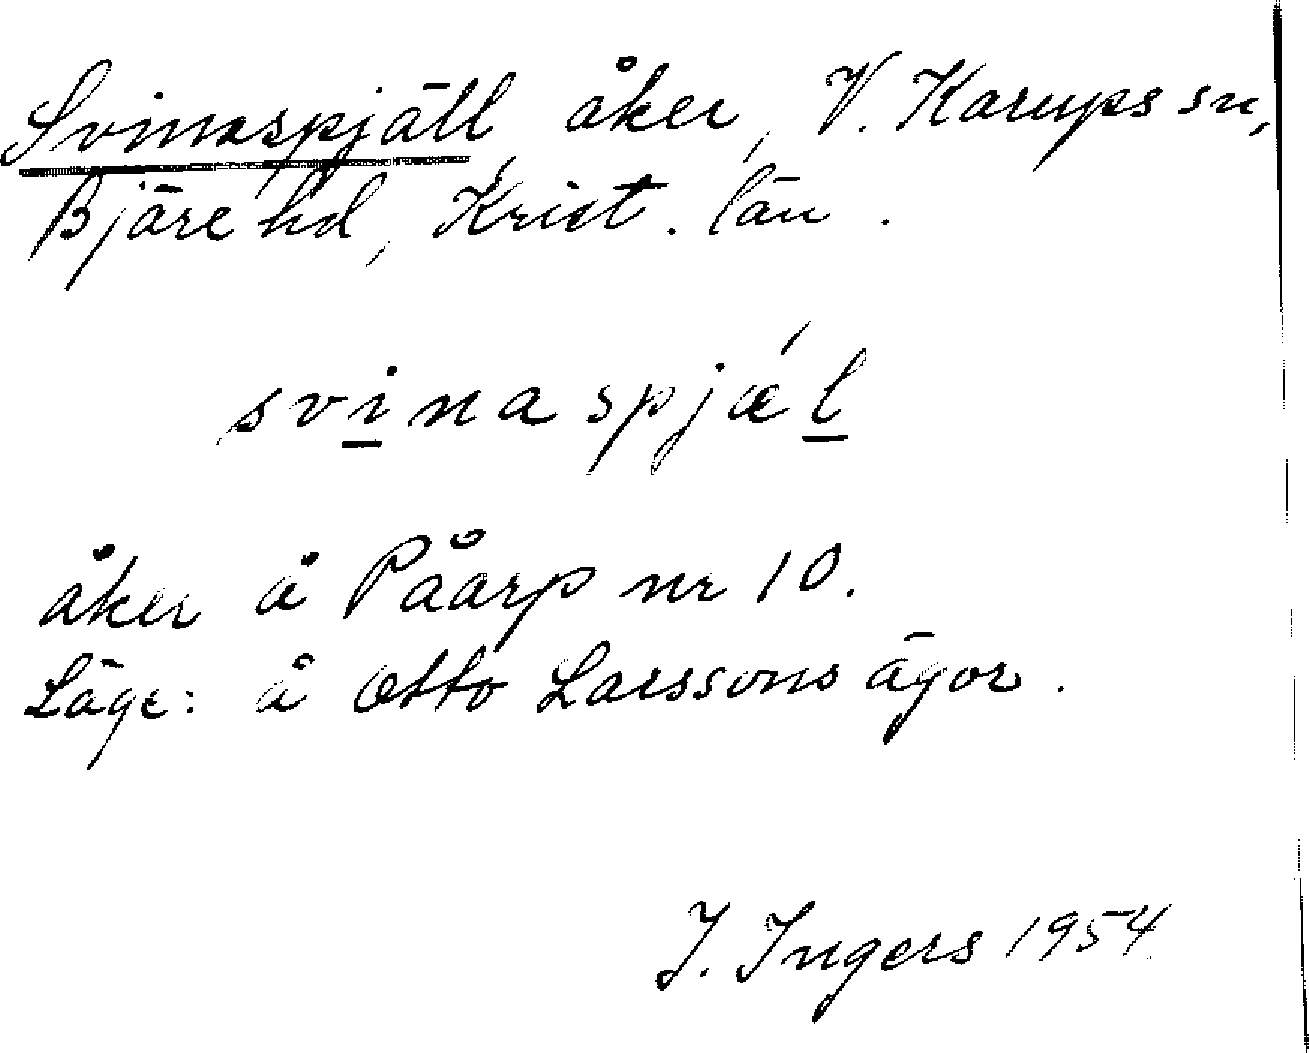 Svinaspjäll åker, V. Karups sn,
Bjäre hd, Krist. län.
svinaspjǽl
åker å Påarp nr 10.
Läge: å Otto Larssons ägor.
I. Ingers 1954